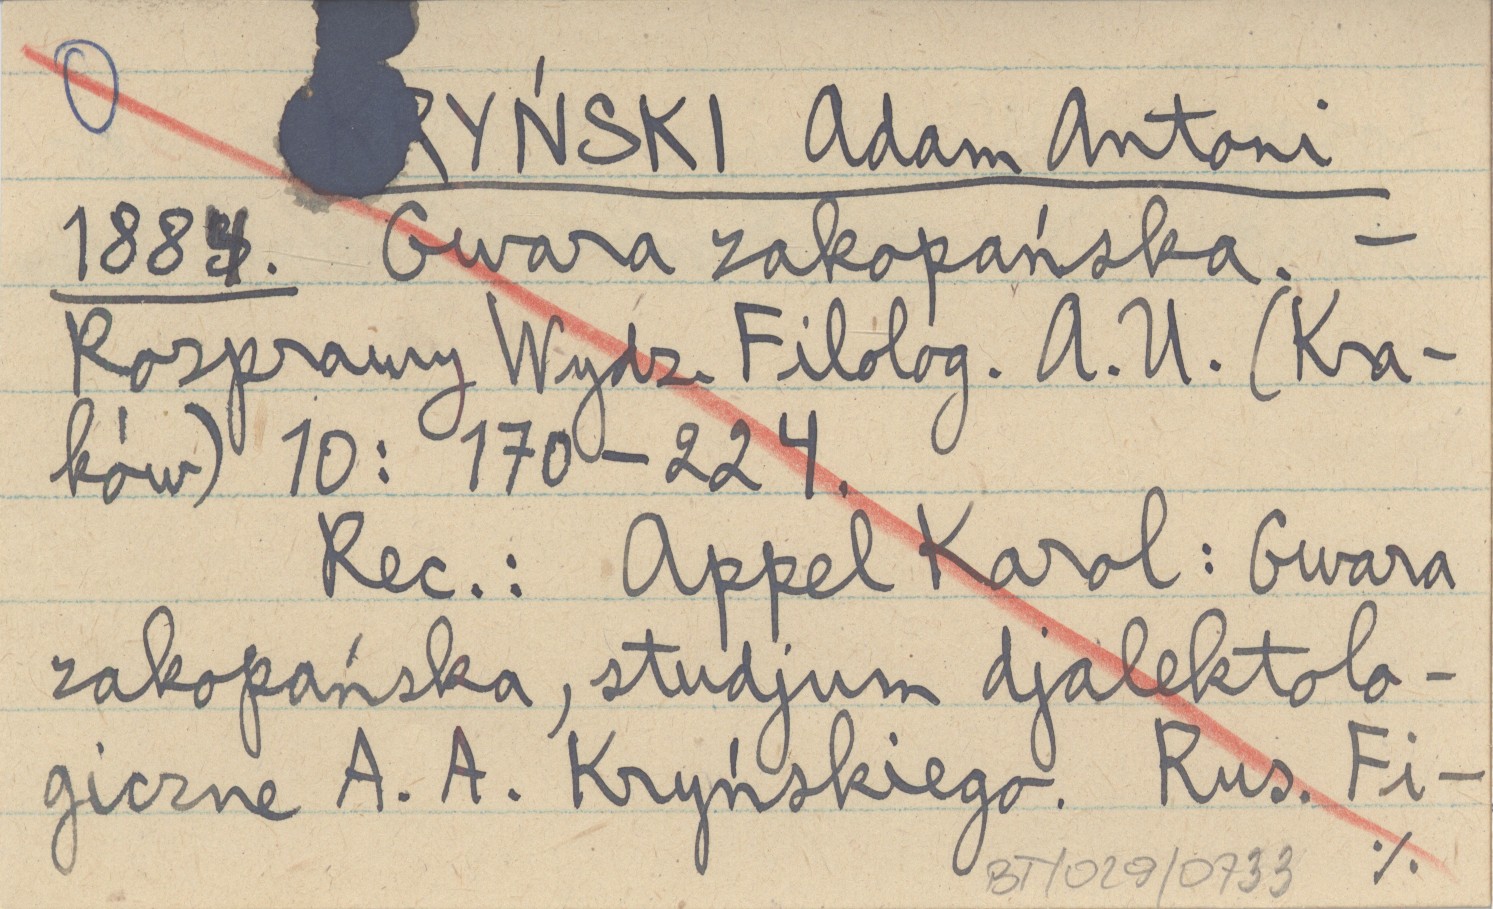 RYŃSKI Adam Antoni
1884. Gwara zakopańska. –
Rozprawy Wydz. Filolog. A.U. (Kra-
ków) 10: 170–224.
Rec.: Appel Karol: Gwara
zakopańska, studjum djalektolo-
giczne A. A. Kryńskiego. Rus. Fi-
./.
BT/029/0733